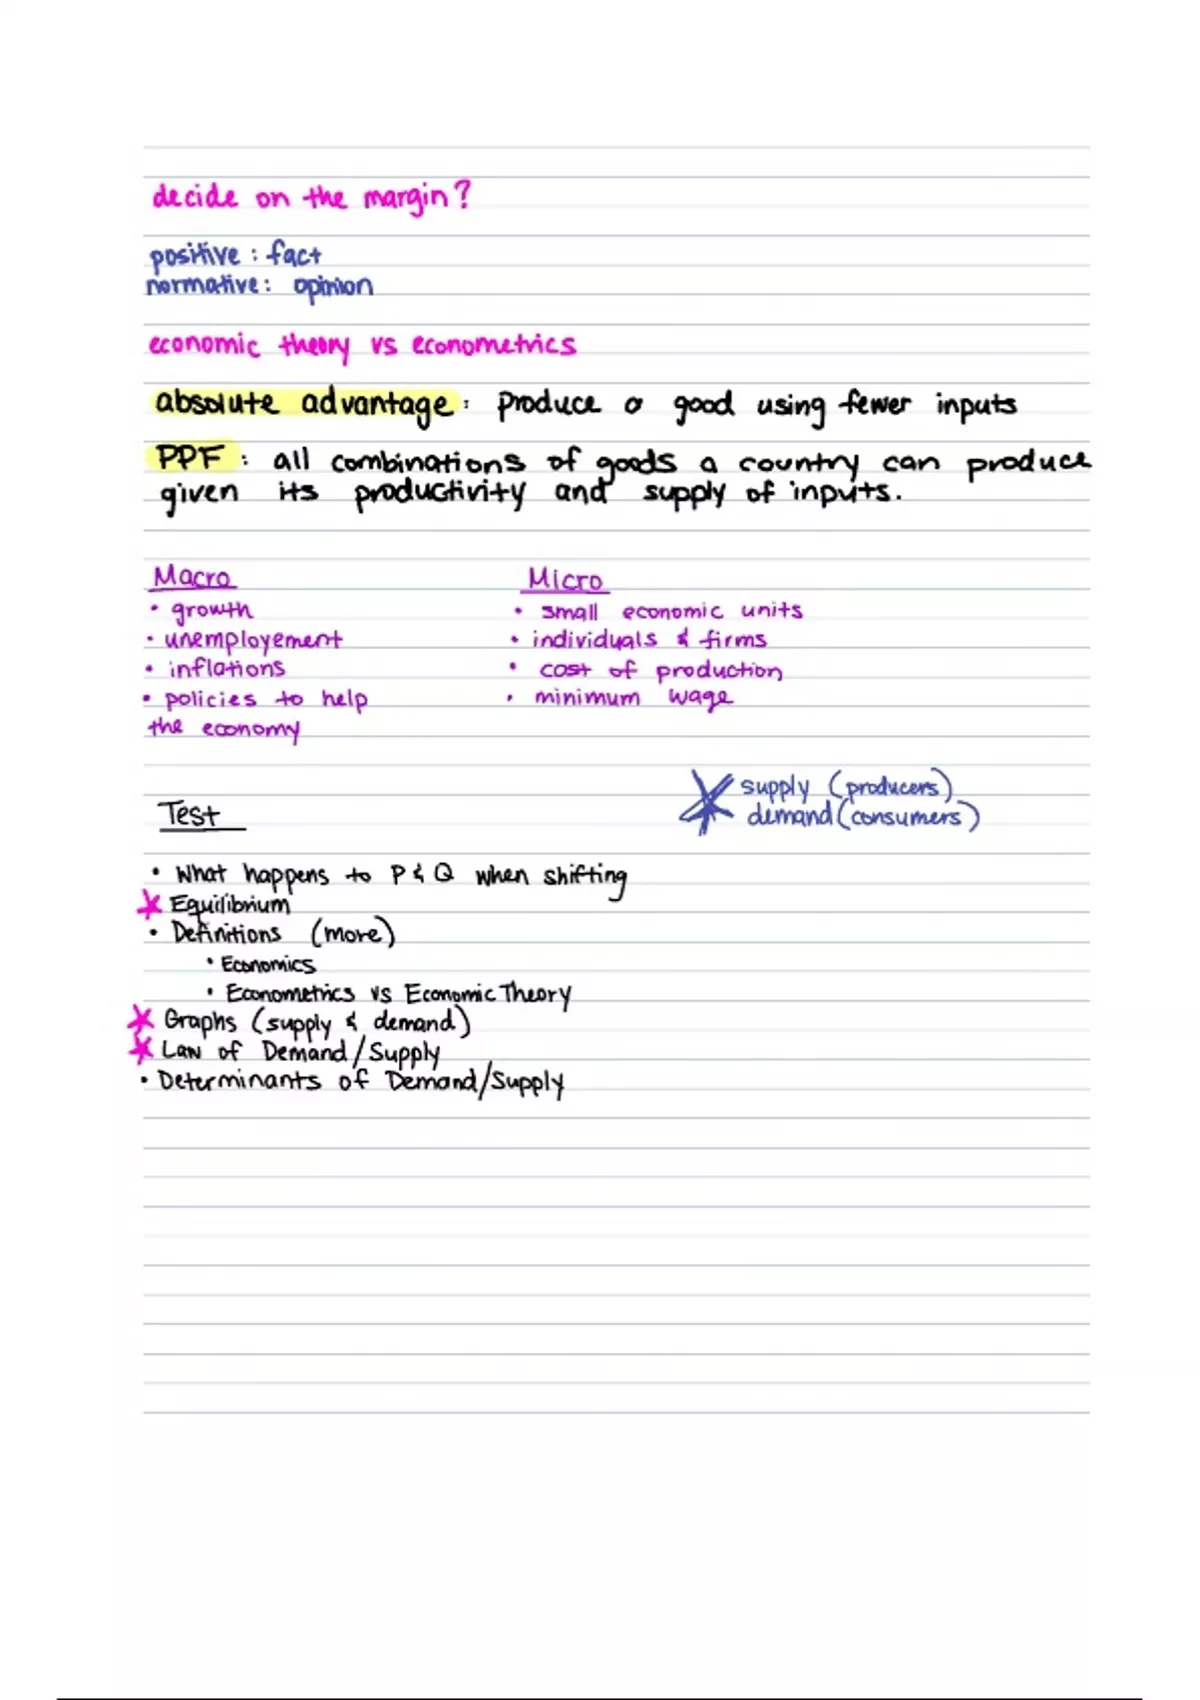 decide on the margin?
positive : fact
normative : opinion
economic theory vs econometrics
absolute advantage : produce a good using fewer inputs
PPF : all combinations of goods a country can produce
given its productivity and supply of inputs.
Macro
• growth
• unemployement
• inflations
• policies to help
the economy
Micro
• small economic units
• individuals & firms
• cost of production
• minimum wage
supply (producers)
demand (consumers)
Test
• What happens to P & Q when shifting
Equilibrium
• Definitions (more)
• Economics
• Econometrics vs Economic Theory
Graphs (supply & demand)
Law of Demand/Supply
• Determinants of Demand/Supply